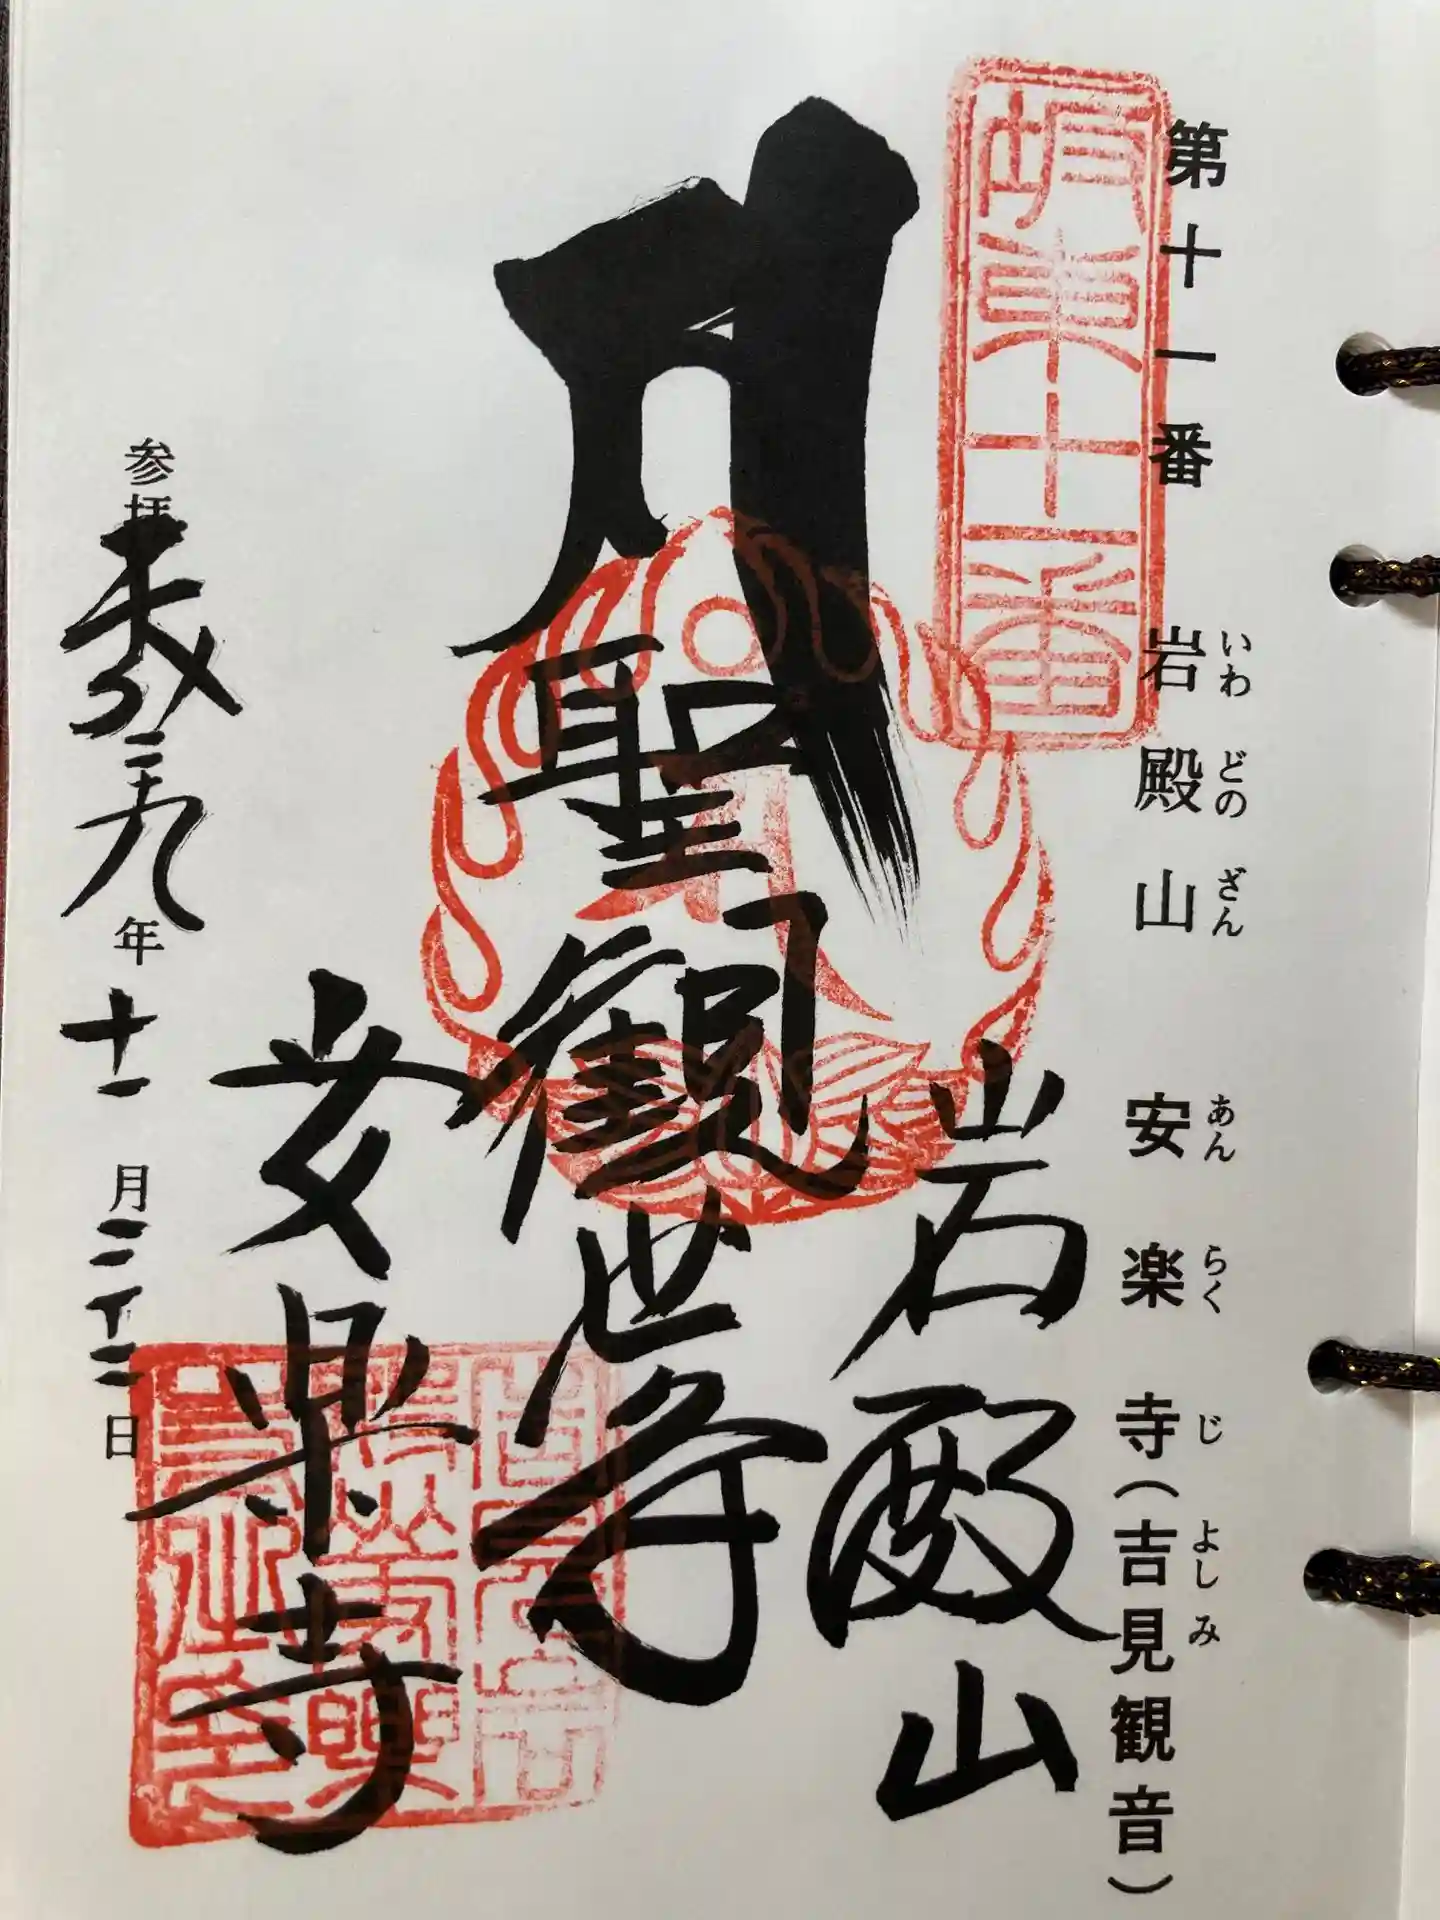 第十一番 岩殿山 安楽寺(吉見観音)
いわ どの ざん あん らく じ よしみ
坂東十一番
岩殿山
聖観世音
安楽寺
参拝 平成二十九年十一月二十二日